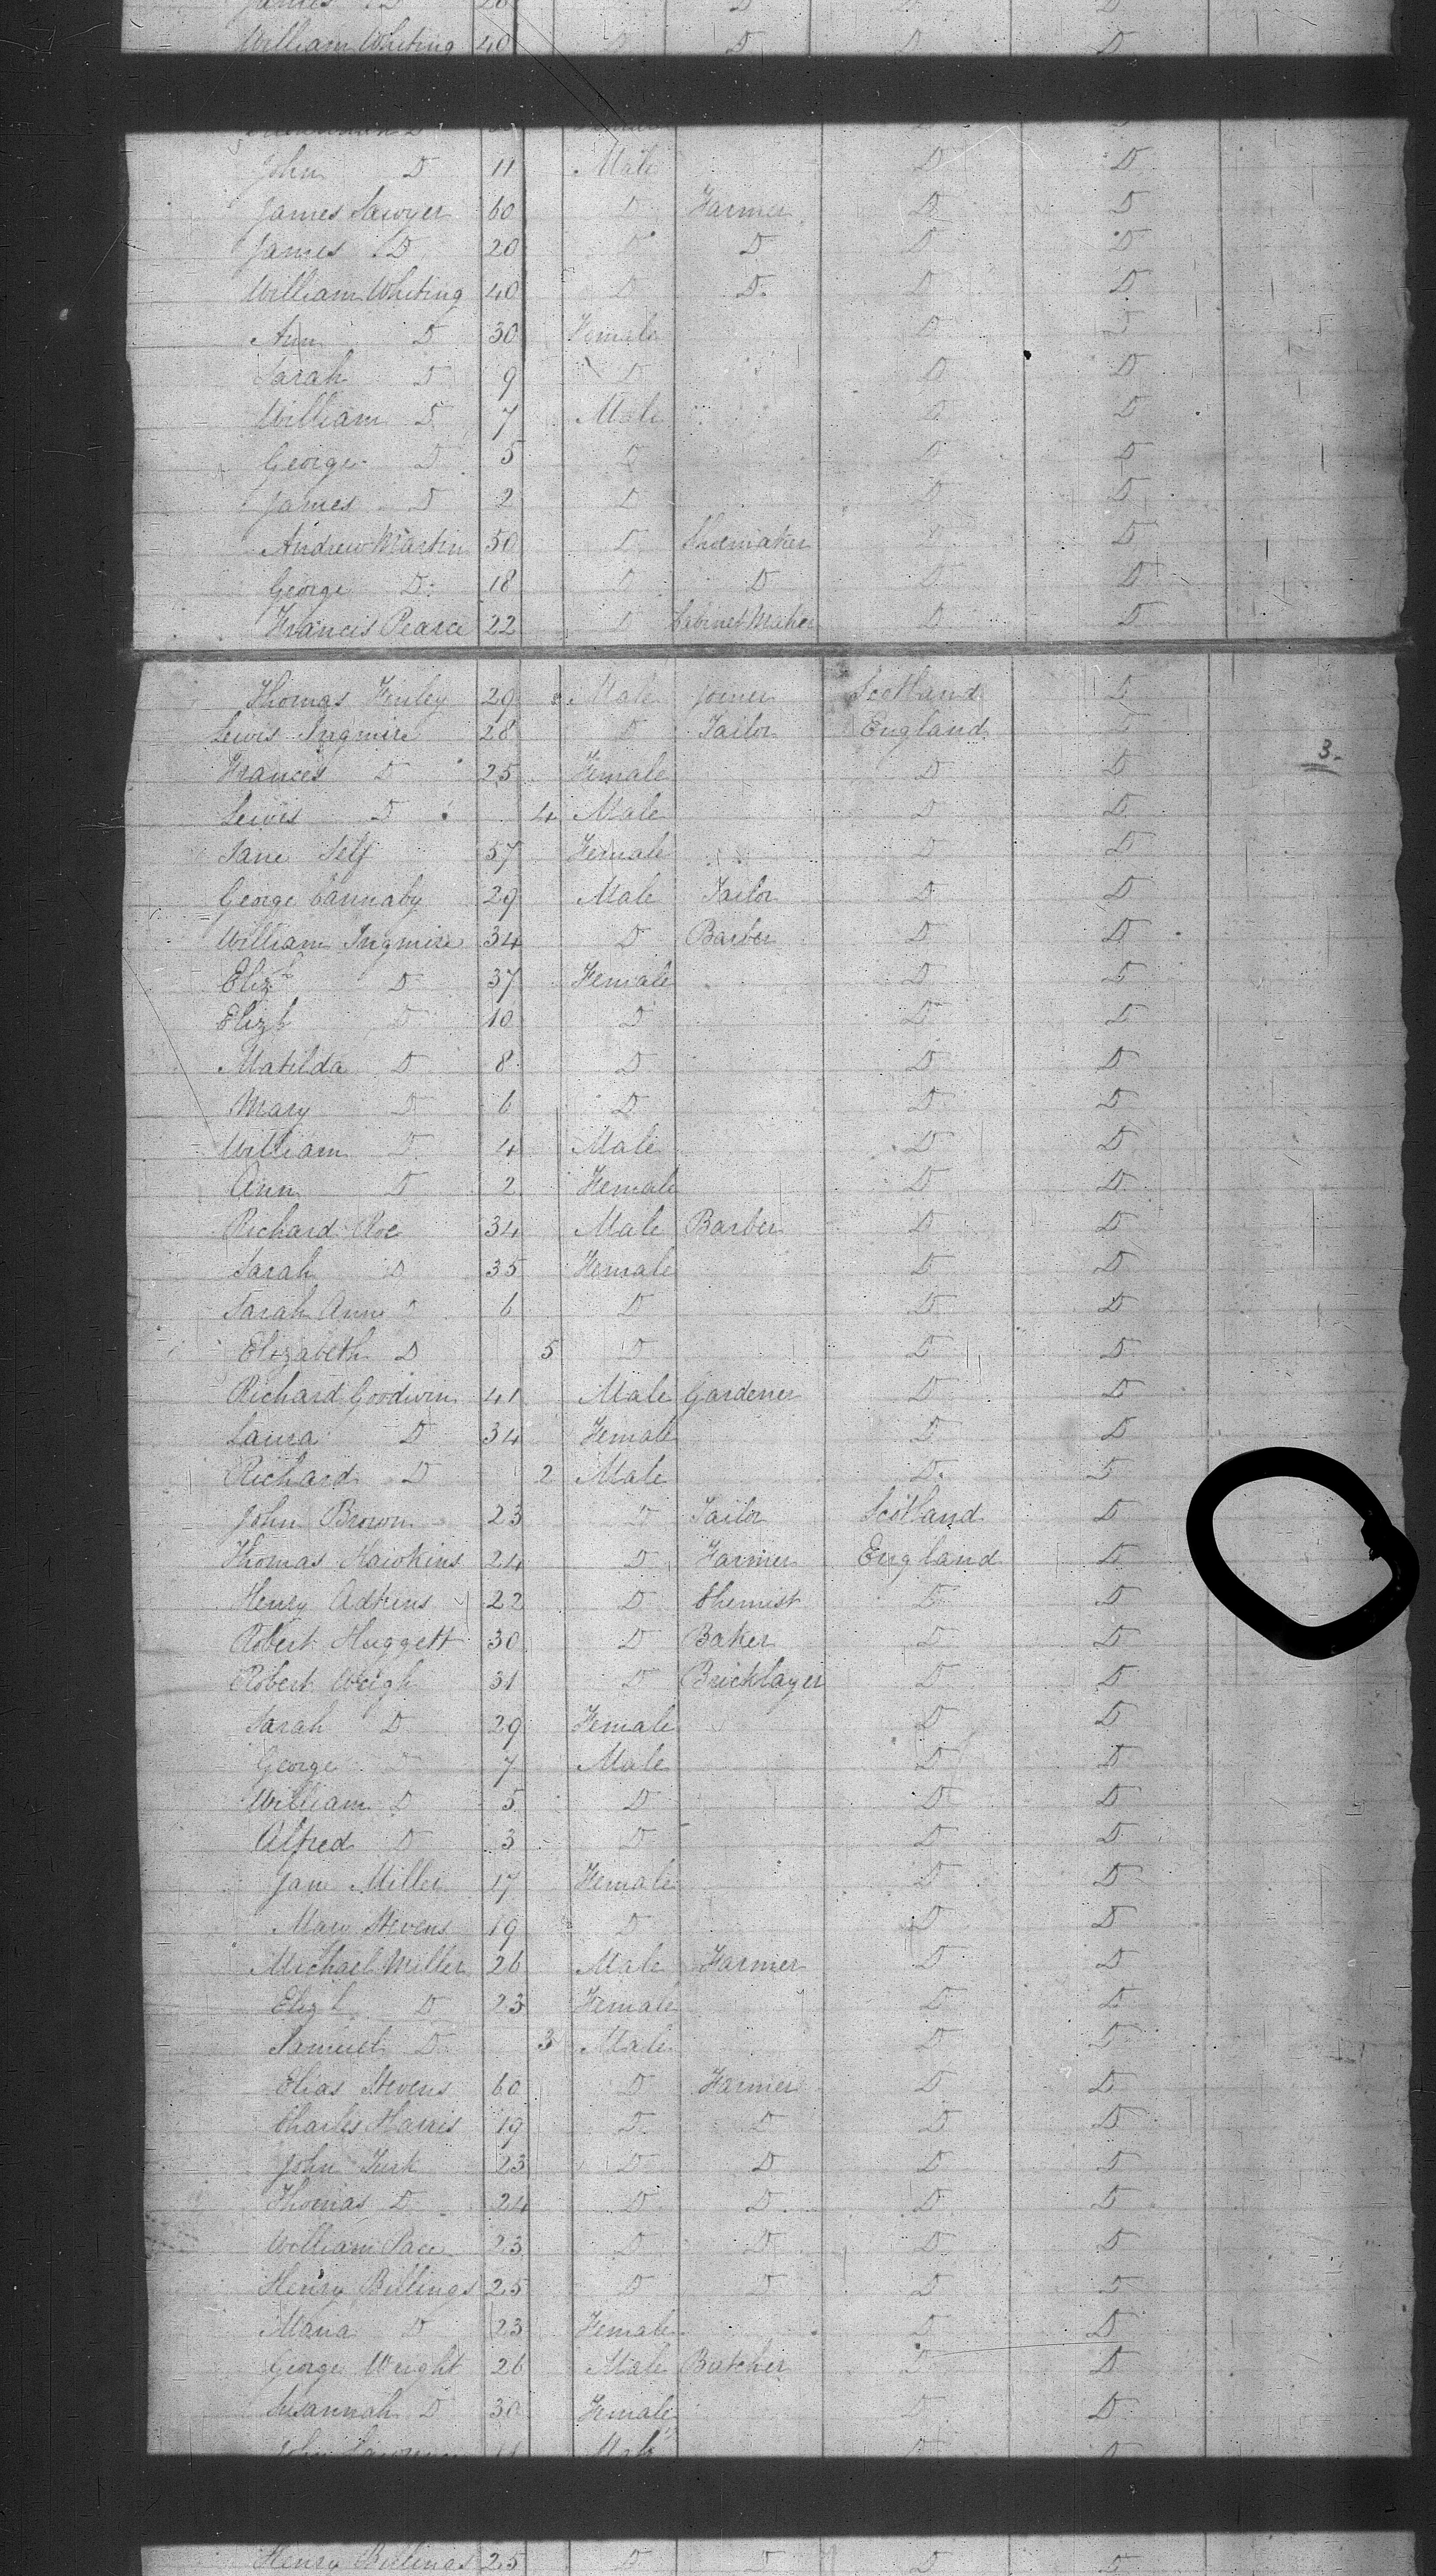 James D 20 D D D D
William Whiting 40 D D D D
John D 11 Male D D
James Sawyer 60 D Farmer D D
James D 20 D D D D
William Whiting 40 D D. D D
Ann D 30 Female D D
Sarah D 9 D D D
William D 7 Male D D
George D 5 D D D
James D 2 D D D
Andrew Martin 50 D Shoemaker D D
George D: 18 D D D D
Francis Pearce 22 D Cabinet Maker D D
Thomas Finley 29 Male Joiner Scotland D
Lewis Ingmire 28 D Tailor England D
3.
Frances D 25 Female D D
Lewis D 4 Male D D
Jane Self 57 Female D D
George Cannaby 29 Male Tailor D D
William Ingmire 34 D Barber D D
Elizh D 37 Female D D
Elizh D 10 D D D
Matilda D 8 D D D
Mary D 6 D D D
William D 4 Male D D
Ann D 2 Female D D
Richard Roe 34 Male Barber D D
Sarah D 35 Female D D
Sarah Ann D 6 D D D
Elizabeth D 5 D D D
Richard Goodwin 41 Male Gardener D D
Laura D 34 Female D D
Richard D 2 Male D. D
John Brown 23 D Tailor Scotland D
Thomas Hawkins 24 D Farmer England D
Henry Adkins 22 D Chemist D D
Robert Huggett 30 D Baker D D
Robert Weigh 31 D Bricklayer D D
Sarah D 29 Female D D
George D 7 Male D D
William D 5 D D D
Alfred D 3 D D D
Jane Miller 17 Female D D
Mary Stevens 19 D D D
Michael Miller 26 Male Farmer D D
Elizh D 23 Female D D
Samuel D 3 Male D D
Elias Stevens 60 D Farmer D D
Charles Harris 19 D D D D
John Turk 23 D D D D
Thomas D 24 D D D D
William Pace 23 D D D D
Henry Billings 25 D D D D
Maria D 23 Female D D
George Wright 26 Male Butcher D D
Susannah D 30 Female D D
John Male D D
Henry Billings 25 D D D D